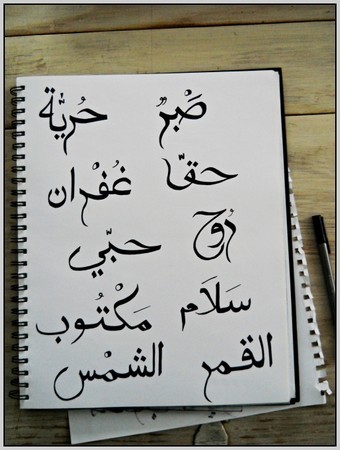 صَبْرُ حُريّة
حقّا غُفْران
رُوح حبّي
سَلَام مَكْتُوب
القمر الشمْس